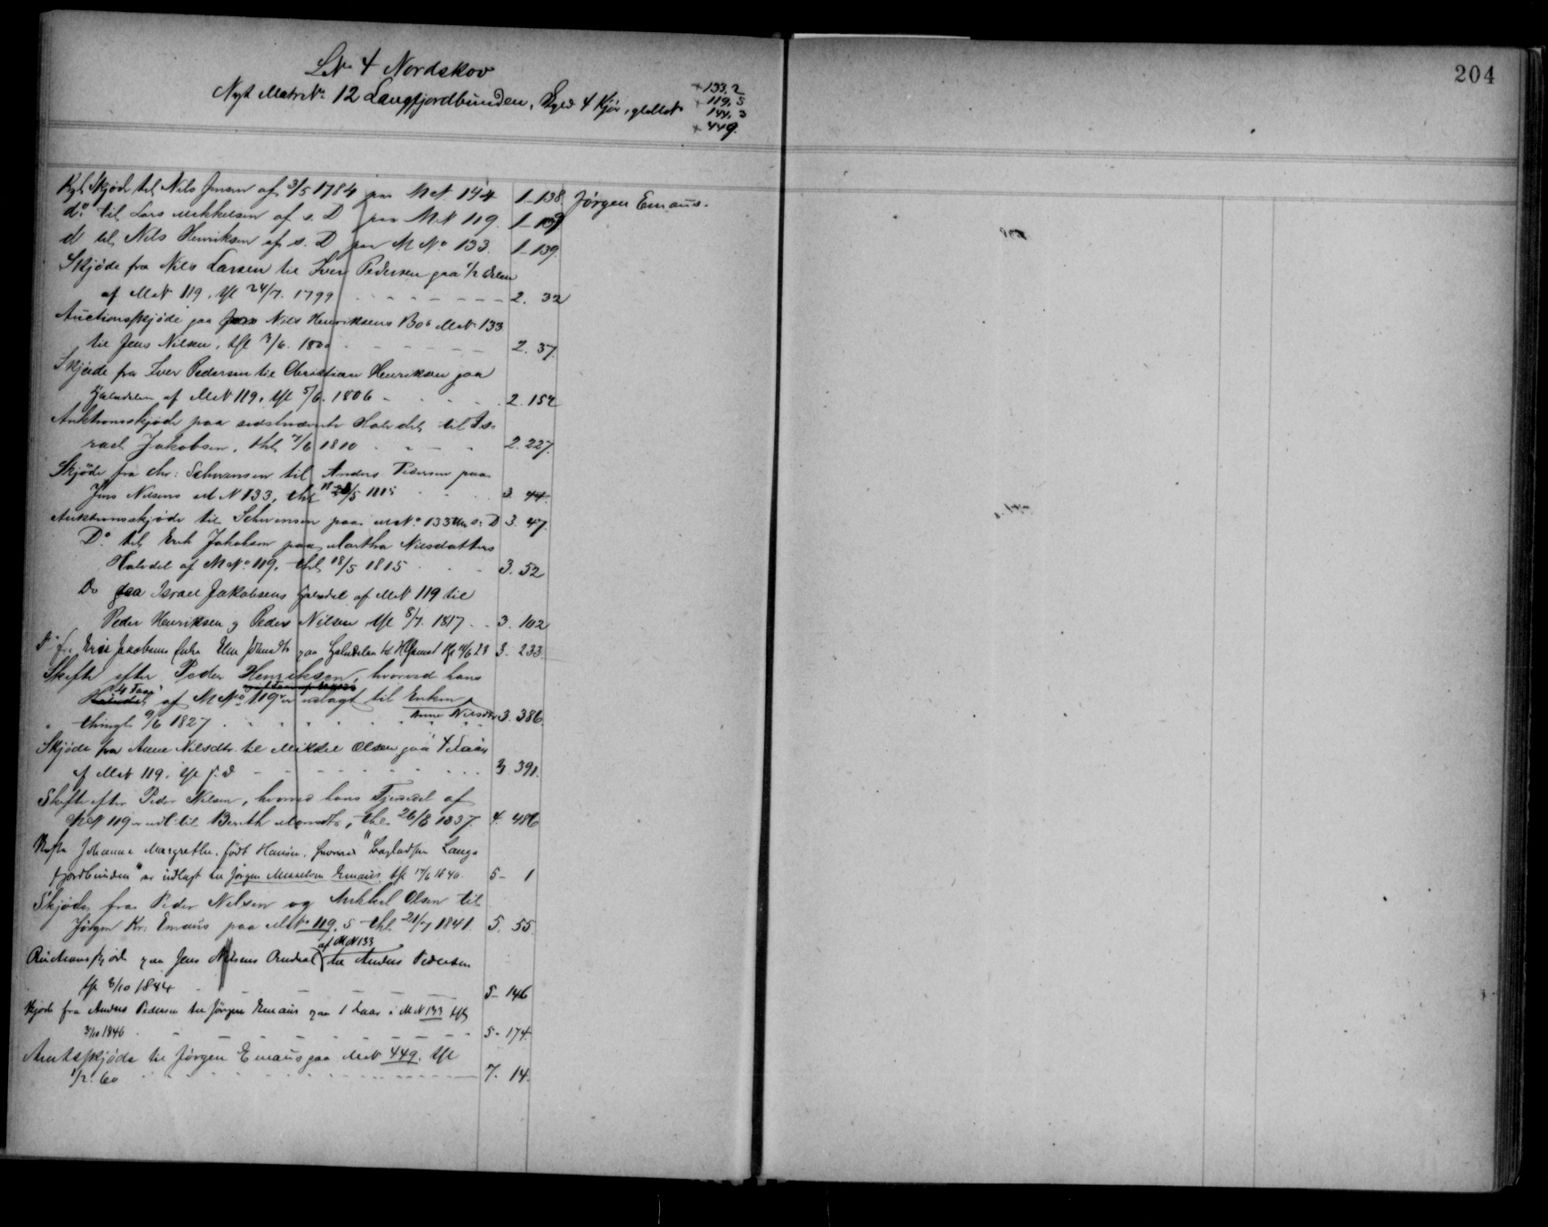 204
LN 4 Nordskov
Nyt Matr. No 12 Langfjordbunden, Skyld 4 Kjør, gl. Mat
+ 133, 2
+ 119, 5
144, 3
+ 449.
Kgl. Skjøde til Nils Jensen af 3/5 1784 paa MN 144 1 - 138 Jørgen Emaus.
do til Lars Mikkelsen af s. D paa MN 119. 1 - 139
d til Nils Henriksen af s. D paa M No 133. 1 - 139.
Skjøde fra Nils Larsen til Iver Pedersen paa 1/2 Delen
af MN 119. thl 24/7. 1799 2. 32
Auctionsskjøde paa Nils Henriksens Bo's MN 133
til Jens Nilsen, thl /6. 1800 2. 37.
Skjøde fra Iver Pedersen til Christian Henriksen paa
Halvdelen af MN 119. thl 5/6. 1806 2. 154
Auktionsskjøde paa sidstnævnte Halvdel til Is-
rael Jakobsen, thl /6 1810 2. 227.
Skjøde fra Chr: til Anders Pedersen paa
Jens Nilsens MN 133, thl /5 1815 3. 44.
Auktionsskjøde til paa MNo 133 thl s. D 3. 47.
Do til Erik Jakobsen paa Martha Nilsdatters
Halvdel af M No 119. thl 18/5 1815 3. 52
Do paa Israel Jakobsens Halvdel af MN 119 til
Peder Henriksen og Peder Nilsen thl 8/7. 1817 3. 102
Do fra Erik Jakobsens Enke paa Halvdelen til 4/6 23 3. 233.
Skifte efter Peder Henriksen, hvorved hans
4 Faar
Halvdel af M No 119 er udlagt til Enken
Anne Nilsdtr
thingl. 9/6 1827 3. 386.
Skjøde fra Anne Nilsdtr. til Mikkel Olsen paa 4 Faar
af MN 119. thl s. d 3 391.
Skifte efter Peder Nilsen, hvorved hans Fjerdedel af
MN 119 er udl. til Berith, thl. 26/8 1837. 4. 486
Skifte Johanne Margrethe, født Hansen, hvorved "Langs
fjordbunden" er udlagt til Jørgen Emaus thl 17/6 1840. 5 - 1
Skjøde fra Peder Nilsen og Mikkel Olsen til
Jørgen Kr. Emaus paa MNo 119, 5 thl. 21/7 1841. 5. 55.
af MN 133
Auctionsskjøde paa Jens Nilsens Andeel til Anders Pedersen
thl 2/10 1844 5 - 146
Skjøde fra Anders Pedersen til Jørgen Emaus paa 1 Faar i MN 133 thl
/10 1846 5 - 174.
Amtsskjøde til Jørgen Emaus paa MN 449. thl
1/2. 60 7. 14.